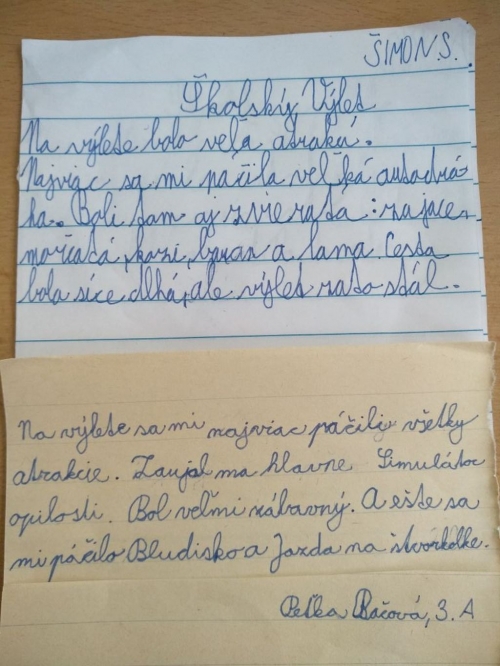 ŠIMON.S.
Školský Výlet
Na výlete bolo veľa atrakcí.
Najviac sa mi páčila veľká autodrá-
ha. Boli tam aj zvieratá: zajace,
morčatá, kozi, byvan a lama. Cesta
bola síce dlhá, ale výlet zato stál.
Na výlete sa mi najviac páčili všetky
atrakcie. Zaujal ma hlavne Simulátor
opilosti. Bol veľmi zábavný. A ešte sa
mi páčilo Bludisko a Jazda na štvorkolke.
Peťka Bačová, 3. A